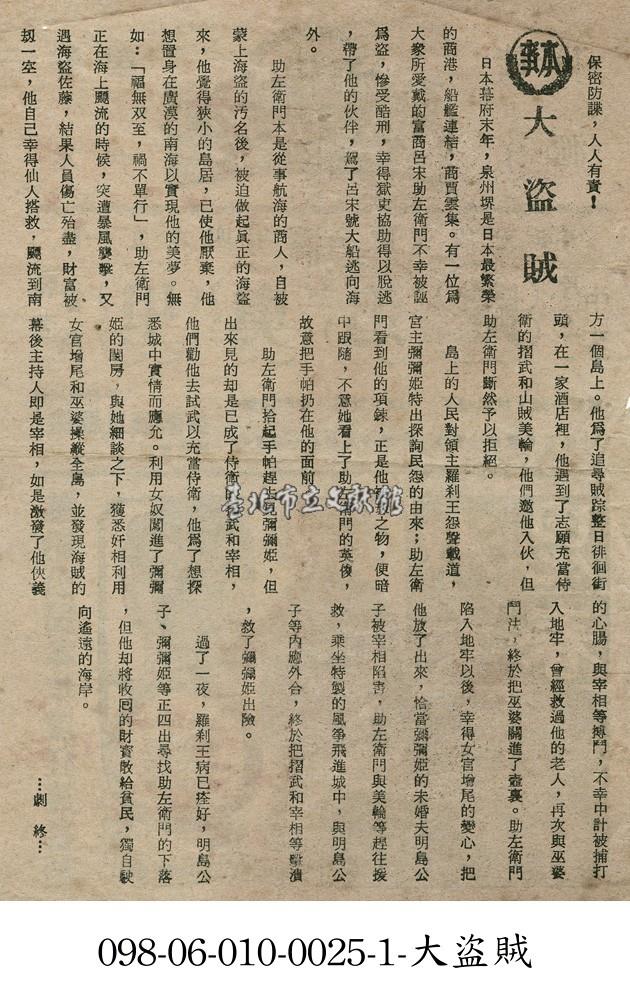 保密防諜，人人有責！
本事
大盜賊
日本幕府末年，泉州堺是日本最繁榮
的商港，船艦連結，商賈雲集。有一位爲
大衆所愛戴的富商呂宋助左衛門不幸被誣
爲盜，慘受酷刑，幸得獄吏協助得以脫逃
，帶了他的伙伴，駕了呂宋號大船逃向海
外。
助左衛門本是從事航海的商人，自被
蒙上海盜的汚名後，被迫做起眞正的海盜
來，他覺得狹小的島居，已使他厭棄，他
想置身在廣漠的南海以實現他的美夢。無
如：「福無双至，禍不單行」，助左衛門
正在海上飄流的時候，突遭暴風襲擊，又
遇海盜佐藤，結果人員傷亡殆盡，財富被
刼一空，他自己幸得仙人搭救，飄流到南
方一個島上。他爲了追尋賊踪整日徘徊街
頭，在一家酒店裡，他遇到了志願充當侍
衛的摺武和山賊美輪，他們邀他入伙，但
助左衛門斷然予以拒絕。
島上的人民對領主羅利王怨聲載道，
宮主彌彌姫特出探詢民怨的由來；助左衛
門看到他的項鍊，正是他之物，便暗
中跟隨，不意她看上了助左衛門的英俊，
故意把手帕扔在他的面前
助左衛門拾起手帕趕去彌彌姫，但
出來見的却是已成了侍衛武和宰相，
他們勸他去試武以充當侍衛，他爲了想探
悉城中實情而應允。利用女奴闖進了彌彌
姫的閨房，與她細談之下，獲悉奸相利用
女官增尾和巫婆操縱全島，並發現海賊的
幕後主持人即是宰相，如是激發了他俠義
的心腸，與宰相等搏鬥，不幸中計被捕打
入地牢，曾經救過他的老人，再次與巫婆
鬥法，終於把巫婆關進了壺裏。助左衛門
陷入地牢以後，幸得女官增尾的變心，把
他放了出來，恰當彌彌姫的未婚夫明島公
子被宰相陷害，助左衛門與美輪等趕往援
救，乘坐特製的風箏飛進城中，與明島公
子等內應外合，終於把摺武和宰相等擊潰
，救了彌彌姫出險。
過了一夜，羅利王病已痊好，明島公
子、彌彌姫等正四出尋找助左衛門的下落
，但他却將收囘的財寶散給貧民，獨自駛
向遙遠的海岸。
…劇　終…
臺北市立文獻館
098-06-010-0025-1-大盜賊